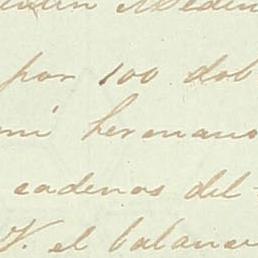 por 100 dob
mi hermano
cadenas del
V. el balance